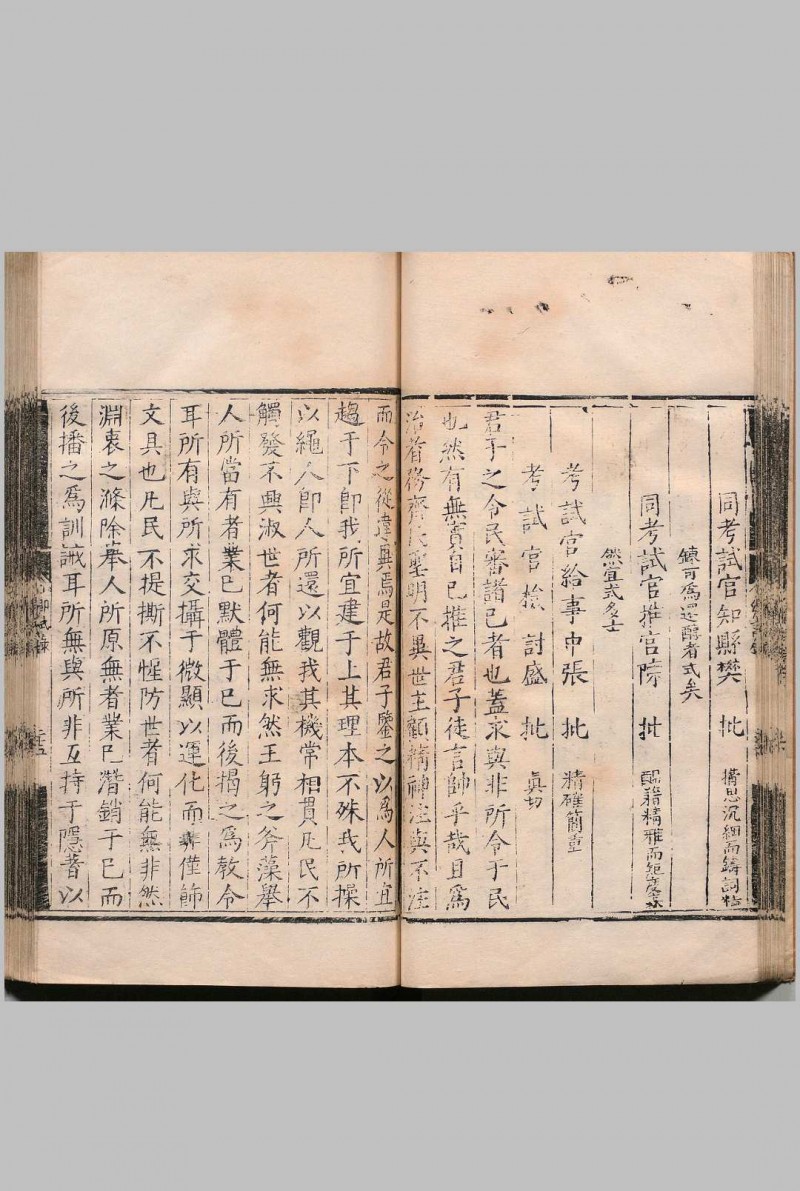 同考試官知縣樊 批 搆思沉細而鑄詞精
鍊可為還醇者式矣
同考試官推官陳 批 醞籍精雅而矩矱森
然宜式多士
考試官給事中張 批 精確簡重
考試官檢討盛 批 真切
君子之令民審諸已者也蓋求與非所令于民
也然有無實自已推之君子徒言帥乎哉且為
治者務齊民聖明不異世主顧精神注與不注
而令之從違異焉是故君子鑒之以為人所宜
趨于下即我所宜建于上其理本不殊我所操
以繩人即人所還以觀我其機常相貫凡民不
觸發不興淑世者何能無求然王躬之斧藻舉
人所當有者業已默體于已而後揭之為教令
耳所有與所求交攝于微顯以運化而非僅飾
文具也凡民不提撕不惺防世者何能無非然
淵衷之滌除舉人所原無者業已潛銷于已而
後播之為訓誡耳所無與所非互持于隱著以
鄉試錄